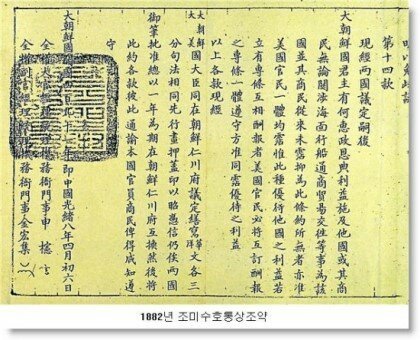 第十四款
現經兩國議定嗣後
大朝鮮國君主有何惠政恩典利益施及他國或其商
民無論關涉海面行船通商貿易交往等事為該
國並其商民從來未霑抑為此條約所無者亦准
美國官民一體均霑惟此種優待他國之利益若
立有專條互相酬報者美國官民必將互訂酬報
之專條一體遵守方准同霑優待之利益
以上各款現經
大朝鮮
大美國大臣同在朝鮮仁川府議定繕寫華洋文各三
分句法相同先行畫押蓋印以昭憑信仍俟兩國
御筆批准總以一年為期在朝鮮仁川府互換然後將
此約各款彼此通諭本國官員商民俾得咸知遵
守
大朝鮮國 年即中國光緒八年四月初六日
全權大官經理 機務衙門事申
全權副官經理 機務衙門事金宏集
1882년 조미수호통상조약